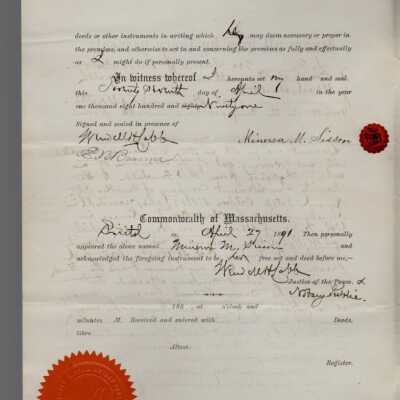 deeds or other instruments in writing which they may deem necessary or proper in
the premises, and otherwise to act in and concerning the premises as fully and effectually
as I might do if personally present.
In witness whereof I hereunto set my hand and seal
this Twenty Seventh day of April in the year
one thousand eight hundred and eighty Ninety one
Signed and sealed in presence of
Wendell H. Cobb Minerva M. Sisson
Commonwealth of Massachusetts.
Bristol ss. April 27 1891 Then personally
appeared the above named Minerva M. Sisson and
acknowledged the foregoing instrument to be her free act and deed before me,—
Wendell H. Cobb
Justice of the Peace. &
Notary Public.
188 at o'clock and
minutes M. Received and entered with Deeds,
libro
Attest:
Register.